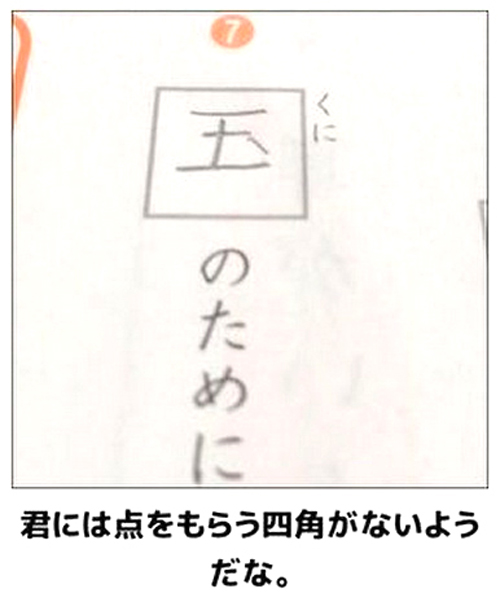 7
くに
玉
のために
君には点をもらう四角がないよう
だな。